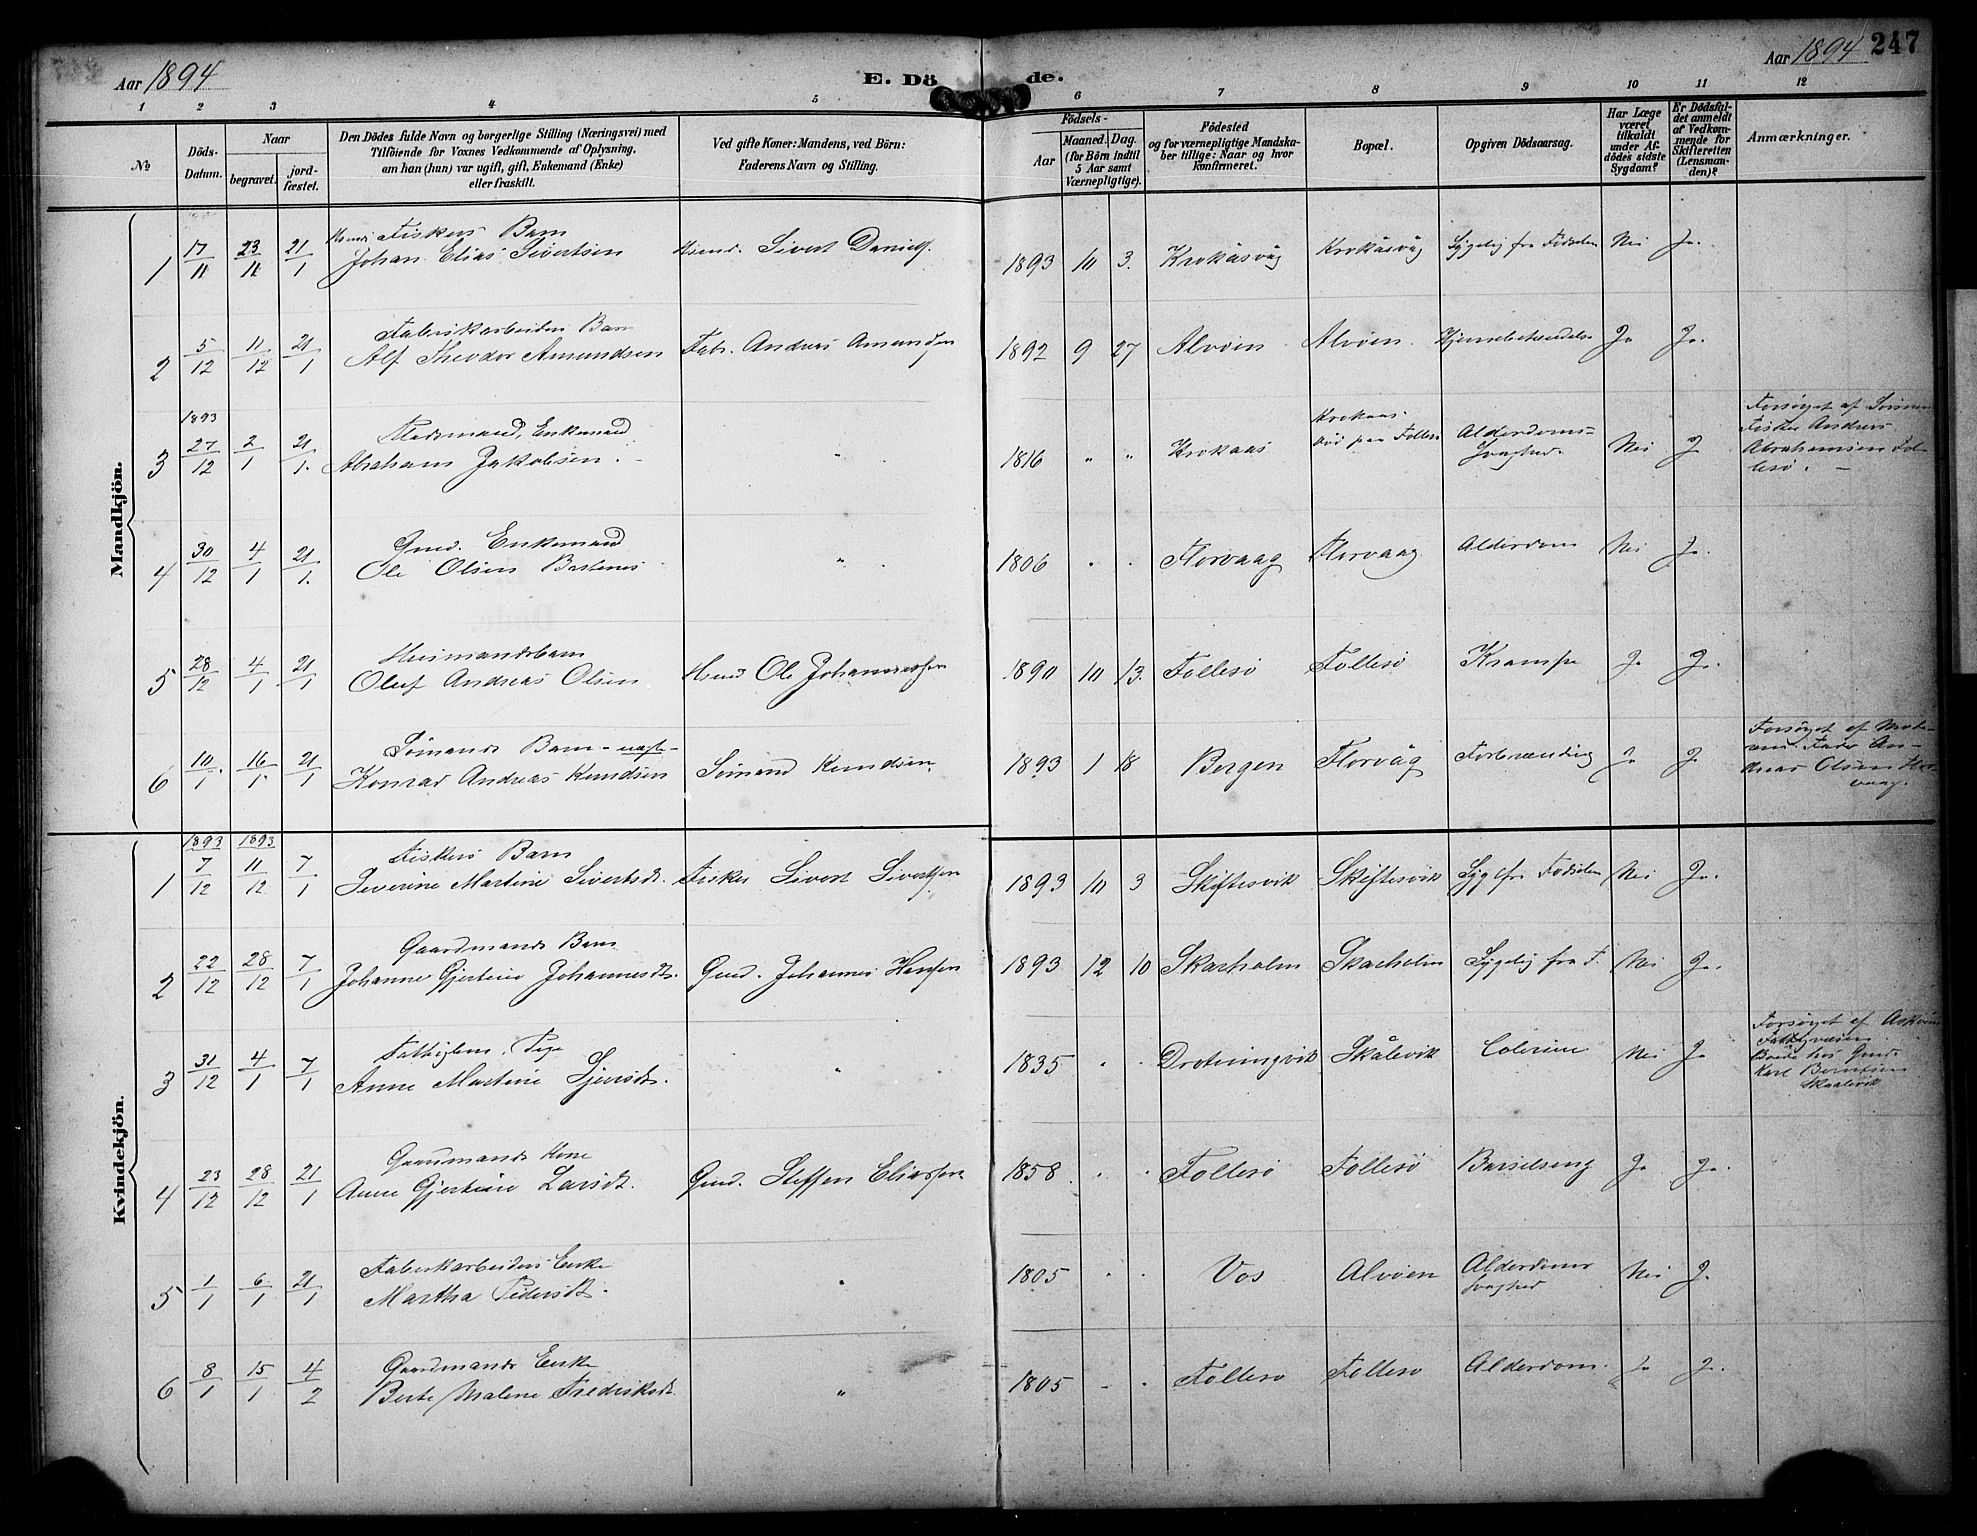 Aar 1894
E. Dö de.
Aar 1894 247
1 2 3 4 5 6 7 8 9 10 11 12
No
Döds-
Datum.
Naar
begravet.
jord-
fæstet.
Den Dödes fulde Navn og borgerlige Stilling (Næringsvei) med
Tilföiende for Voxnes Vedkommende af Oplysning,
om han (hun) var ugift, gift, Enkemand (Enke)
eller fraskilt.
Ved gifte Koner: Mandens, ved Börn:
Faderens Navn og Stilling.
Födsels-
Aar
Maaned. Dag.
(for Börn indtil
5 Aar samt
Værnepligtige).
Födested
og for værnepligtige Mandska-
ber tillige: Naar og hvor
konfirmeret.
Bopæl.
Opgiven Dödsaarsag.
Har Læge
været
tilkaldt
under Af-
dödes sidste
Sygdom?
Er Dödsfal-
det anmeldt
af Vedkom-
mende for
Skifteretten
(Lensman-
den)?
Anmærkninger.
Mandkjön.
Fiskers Barn
1 17/11 23/11 21/1 Johan Elias Sivertsen Sivert Daniels. 1893 10 3. Krokåsvåg Krokåsvåg Sygelig fra Fødselen Nei Ja.
Fabrikarbeiders Barn
2 5/12 11/12 21/1 Alf Theodor Amundsen Fabr. Andreas Amundsen 1892 9 27 Alvøen Alvøen Ja Ja.
1893
3 27/12 2/1 21/1. Enkemand
Abrahams Jakobsen. " 1816 " " Krokaas Krokaas.
Alderdoms-
svaghed. Nei J
Forsøget af
Fisker Andreas
Abrahamsen Fol-
lesø.
4 30/12 4/1 21/1. Gmd. Enkemand
Ole Olsen " 1806 Florvaag Florvaag Alderdom Nei J.
5 28/12 4/1 21/1 Husmandsbarn
Oluf Andreas Olsen Hsmd Ole Johannessen 1890 10 13. Follesø Follesø Krampe J. J.
6 10/1. 16/1 21/1 Sømands Barn - uægte-
Konrad Andreas Knudsen Sømand Knudsen. 1893 1 18 Bergen Florvåg Forbrænding J. J
Forsøget af Mod-
erens Fader An-
dreas Olsen Flor-
vaag.
Kvindekjön.
1893 1893
1 7/12 11/12 7/1 Fiskers Barn
Severine Martine Sivertsdt. Fisker Sivert Sivertsen 1893 10 3 Skiftesvik Skiftesvik Syg fra Fødselen Nei Ja.
2 22/12 28/12 7/1 Gaardmands Barn
Johanne Gjertine Johannesdt. Gmd. Johannes Hansen 1893 12 10 Skarholm Skarholm Sygelig fra F. Nei Ja.
3 31/12 4/1 7/1 Fattiglem, Pige
Anne Martine " 1835 Drotningvik Skålevik Colerine Nei J.
Forsøget af Askøens
Fattigvæsen.
Boede hos Gmd.
Karl Berntsen
Skaalevik
4 23/12 28/12 21/1 Gaardmands Kone
Anne Gjertine Larsdt. Gmd. Steffen Eliassen 1858 Follesø Follesø Barselseng J. J.
5 1/1 6/1 21/1 Fabrikarbeiders Enke
Martha Pedersdt. " 1805 Vos Alvøen Alderdoms
svaghed Nei J.
6 8/1 15/1 4/2 Gaardmands Enke
Berte Malene Fredriksdt. " 1805 Follesø Follesø Alderdom. Ja J.